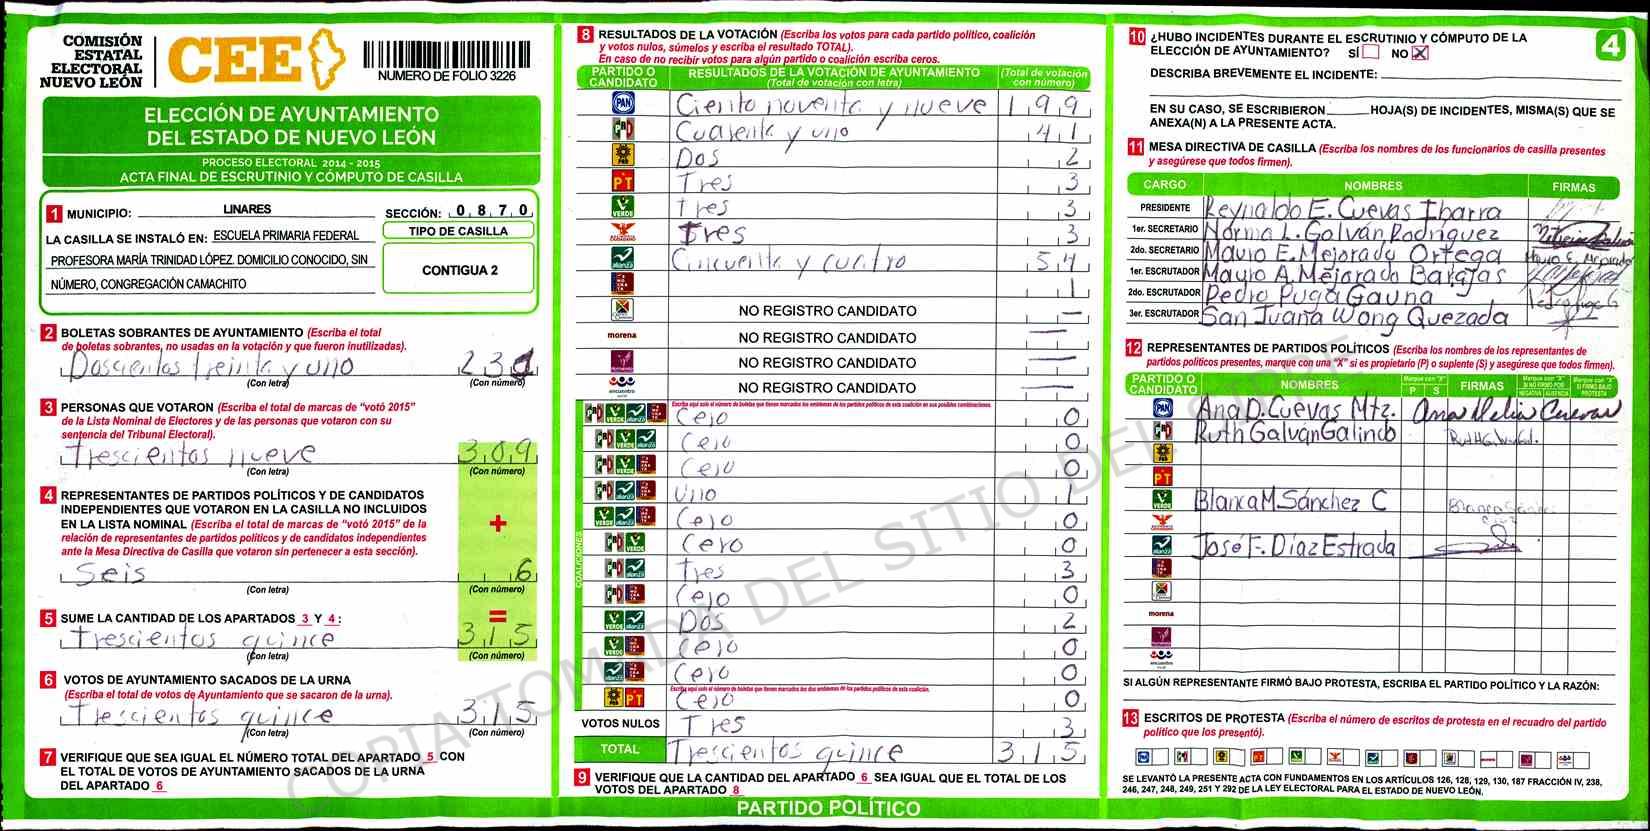 COMISIÓN
ESTATAL
ELECTORAL
NUEVO LEÓN
CEE
NUMERO DE FOLIO 3226
ELECCIÓN DE AYUNTAMIENTO
DEL ESTADO DE NUEVO LEÓN
PROCESO ELECTORAL 2014 - 2015
ACTA FINAL DE ESCRUTINIO Y CÓMPUTO DE CASILLA
1 MUNICIPIO: LINARES SECCIÓN: 0 8 7 0
LA CASILLA SE INSTALÓ EN: ESCUELA PRIMARIA FEDERAL
PROFESORA MARÍA TRINIDAD LÓPEZ. DOMICILIO CONOCIDO, SIN
NÚMERO, CONGREGACIÓN CAMACHITO
TIPO DE CASILLA
CONTIGUA 2
2 BOLETAS SOBRANTES DE AYUNTAMIENTO (Escriba el total
de boletas sobrantes, no usadas en la votación y que fueron inutilizadas).
Doscientos treinta y uno 231
(Con letra) (Con número)
3 PERSONAS QUE VOTARON (Escriba el total de marcas de “votó 2015”
de la Lista Nominal de Electores y de las personas que votaron con su
sentencia del Tribunal Electoral).
Trescientos nueve 309
(Con letra) (Con número)
4 REPRESENTANTES DE PARTIDOS POLÍTICOS Y DE CANDIDATOS
INDEPENDIENTES QUE VOTARON EN LA CASILLA NO INCLUIDOS
EN LA LISTA NOMINAL (Escriba el total de marcas de “votó 2015” de la
relación de representantes de partidos políticos y de candidatos independientes
ante la Mesa Directiva de Casilla que votaron sin pertenecer a esta sección).
+
Seis 6
(Con letra) (Con número)
5 SUME LA CANTIDAD DE LOS APARTADOS 3 Y 4 : =
Trescientos quince 315
(Con letra) (Con número)
6 VOTOS DE AYUNTAMIENTO SACADOS DE LA URNA
(Escriba el total de votos de Ayuntamiento que se sacaron de la urna).
Trescientos quince 315
(Con letra) (Con número)
7 VERIFIQUE QUE SEA IGUAL EL NÚMERO TOTAL DEL APARTADO 5 CON
EL TOTAL DE VOTOS DE AYUNTAMIENTO SACADOS DE LA URNA
DEL APARTADO 6
8 RESULTADOS DE LA VOTACIÓN (Escriba los votos para cada partido político, coalición
y votos nulos, súmelos y escriba el resultado TOTAL).
En caso de no recibir votos para algún partido o coalición escriba ceros.
PARTIDO O CANDIDATO RESULTADOS DE LA VOTACIÓN DE AYUNTAMIENTO (Total de votación con letra) (Total de votación con número)
PAN Ciento noventa y nueve 199
PRD Cuarenta y uno 41
PRD Dos 2
PT Tres 3
VERDE Tres 3
Tres 3
alianza Cincuenta y cuatro 54
1
NO REGISTRO CANDIDATO —
morena NO REGISTRO CANDIDATO —
NO REGISTRO CANDIDATO —
encuentro social NO REGISTRO CANDIDATO —
Escriba aquí solo el número de boletas que tienen marcados los emblemas de los partidos políticos de esta coalición en sus posibles combinaciones.
COALICIONES
Cero 0
Cero 0
Cero 0
Uno 1
Cero 0
Cero 0
Tres 3
Cero 0
Dos 2
Cero 0
Cero 0
Escriba aquí solo el número de boletas que tienen marcados los dos emblemas de los partidos políticos de esta coalición.
PT Cero 0
VOTOS NULOS Tres 3
TOTAL Trescientos quince 315
9 VERIFIQUE QUE LA CANTIDAD DEL APARTADO 6 SEA IGUAL QUE EL TOTAL DE LOS
VOTOS DEL APARTADO 8
PARTIDO POLÍTICO
10 ¿HUBO INCIDENTES DURANTE EL ESCRUTINIO Y CÓMPUTO DE LA
ELECCIÓN DE AYUNTAMIENTO? SÍ NO X
4
DESCRIBA BREVEMENTE EL INCIDENTE:
EN SU CASO, SE ESCRIBIERON HOJA(S) DE INCIDENTES, MISMA(S) QUE SE
ANEXA(N) A LA PRESENTE ACTA.
11 MESA DIRECTIVA DE CASILLA (Escriba los nombres de los funcionarios de casilla presentes
y asegúrese que todos firmen).
CARGO NOMBRES FIRMAS
PRESIDENTE Reynaldo E. Cuevas Ibarra
1er. SECRETARIO Norma L. Galván Rodríguez
2do. SECRETARIO Mauro E. Mejorado Ortega Mauro E. Mejorado
1er. ESCRUTADOR Mayro A. Mejorado Barajas
2do. ESCRUTADOR Pedro Puga Gauna Pedro Puga G
3er. ESCRUTADOR San Juana Wong Quezada
12 REPRESENTANTES DE PARTIDOS POLÍTICOS (Escriba los nombres de los representantes de
partidos políticos presentes, marque con una "X" si es propietario (P) o suplente (S) y asegúrese que todos firmen).
PARTIDO O CANDIDATO NOMBRES Marque con "X" P S FIRMAS Marque con "X" SI NO FIRMÓ POR NEGATIVA AUSENCIA Marque con "X" SI FIRMÓ BAJO PROTESTA
PAN Ana D. Cuevas Mtz. Ana Delia Cuevas
Ruth Galván Galindo
PT
VERDE Blanca M. Sánchez C
alianza José F. Díaz Estrada
morena
encuentro social
SI ALGÚN REPRESENTANTE FIRMÓ BAJO PROTESTA, ESCRIBA EL PARTIDO POLÍTICO Y LA RAZÓN:
13 ESCRITOS DE PROTESTA (Escriba el número de escritos de protesta en el recuadro del partido
político que los presentó).
SE LEVANTÓ LA PRESENTE ACTA CON FUNDAMENTOS EN LOS ARTÍCULOS 126, 128, 129, 130, 187 FRACCIÓN IV, 238,
246, 247, 248, 249, 251 Y 292 DE LA LEY ELECTORAL PARA EL ESTADO DE NUEVO LEÓN.
COPIA TOMADA DEL SITIO DEL SIPRE